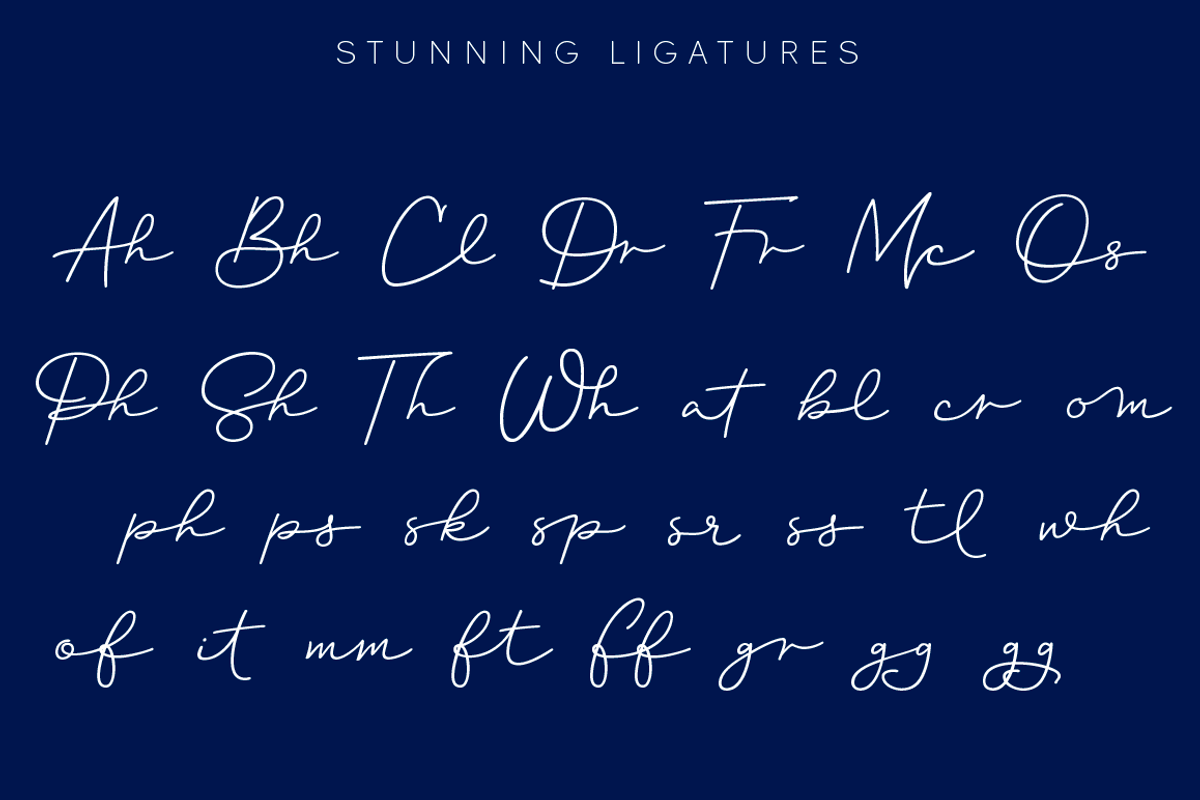 STUNNING LIGATURES
Ah Bh Cl Dr Fr Mc Os
Ph Sh Th Wh at bl cr om
ph ps sk sp sr ss tl wh
of it mm ft ff gr gg gg